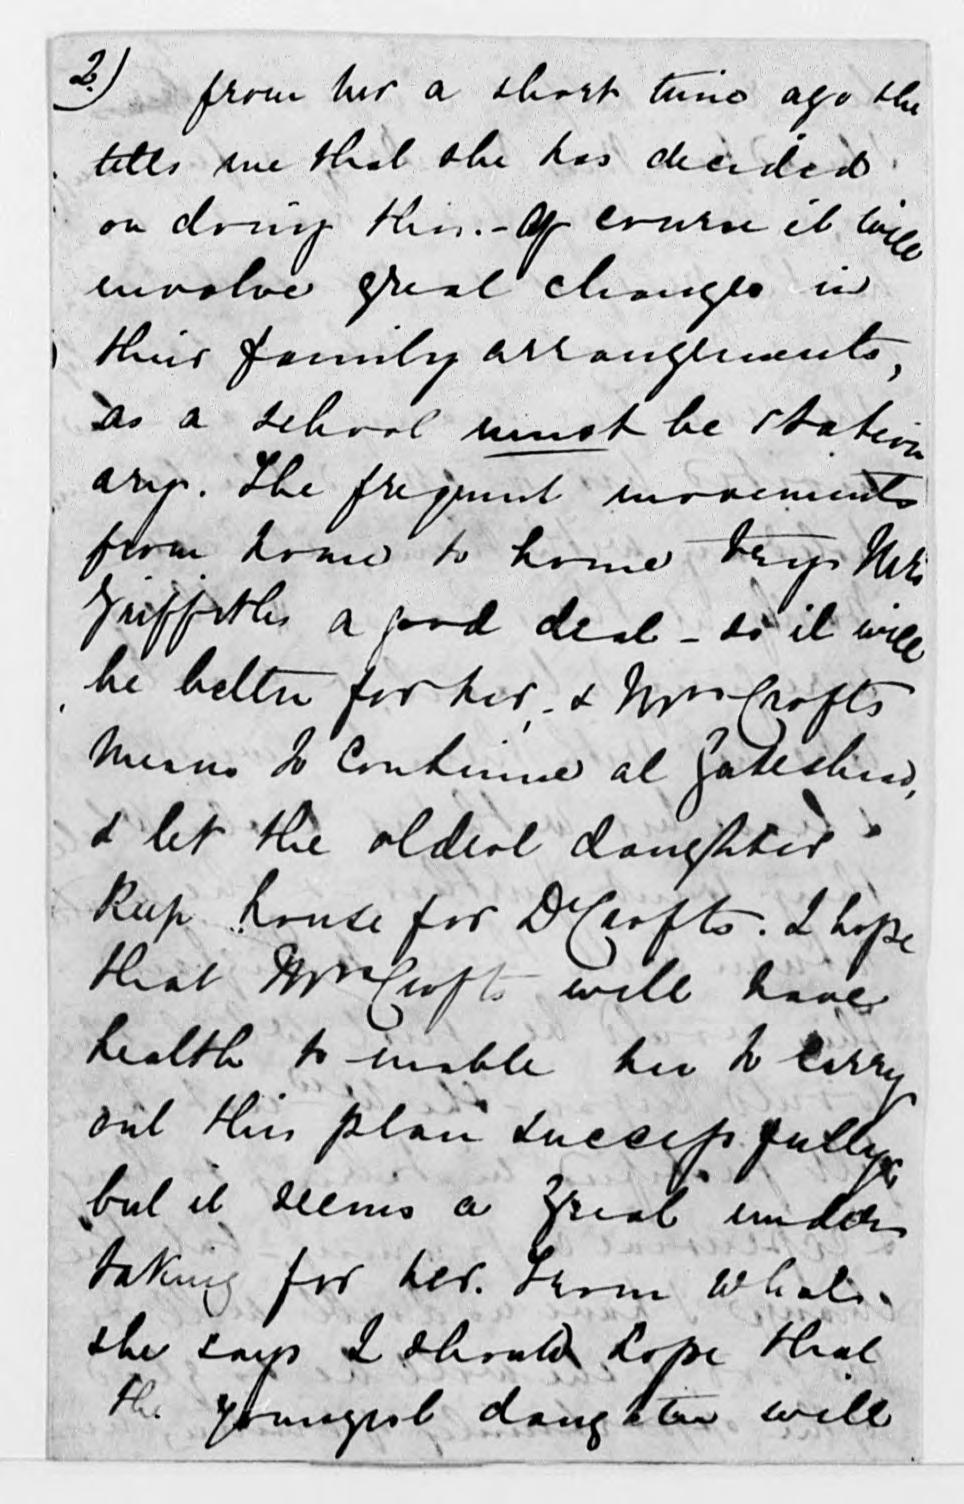 2.) from her a short time ago she
tells me that she has decided
on doing this. - Of course it will
involve great changes in
their family arrangements,
as a school must be station
ary. The frequent movements
from home to home trys Mrs
Griffiths a good deal - so it will
be better for her, - & Mrs Crofts
means to continue at Gateshead,
& let the oldest daughter
keep house for Dr Crofts. I hope
that Mrs Crofts will have
health to enable her to carry
out this plan successfully
but it seems a great under
taking for her. From what
she says I should hope that
the youngest daughter will